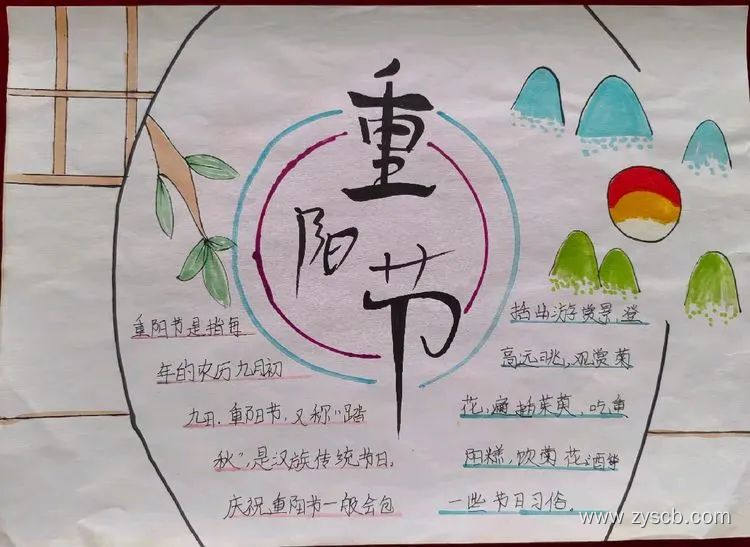 重
阳
节
重阳节是指每
年的农历九月初
九日,重阳节,又称“踏
秋”,是汉族传统节日,
庆祝重阳节一般会包
括出游赏景,登
高远眺,观赏菊
花,遍插茱萸,吃重
阳糕,饮菊花酒等
一些节日习俗。
www.zyscb.com